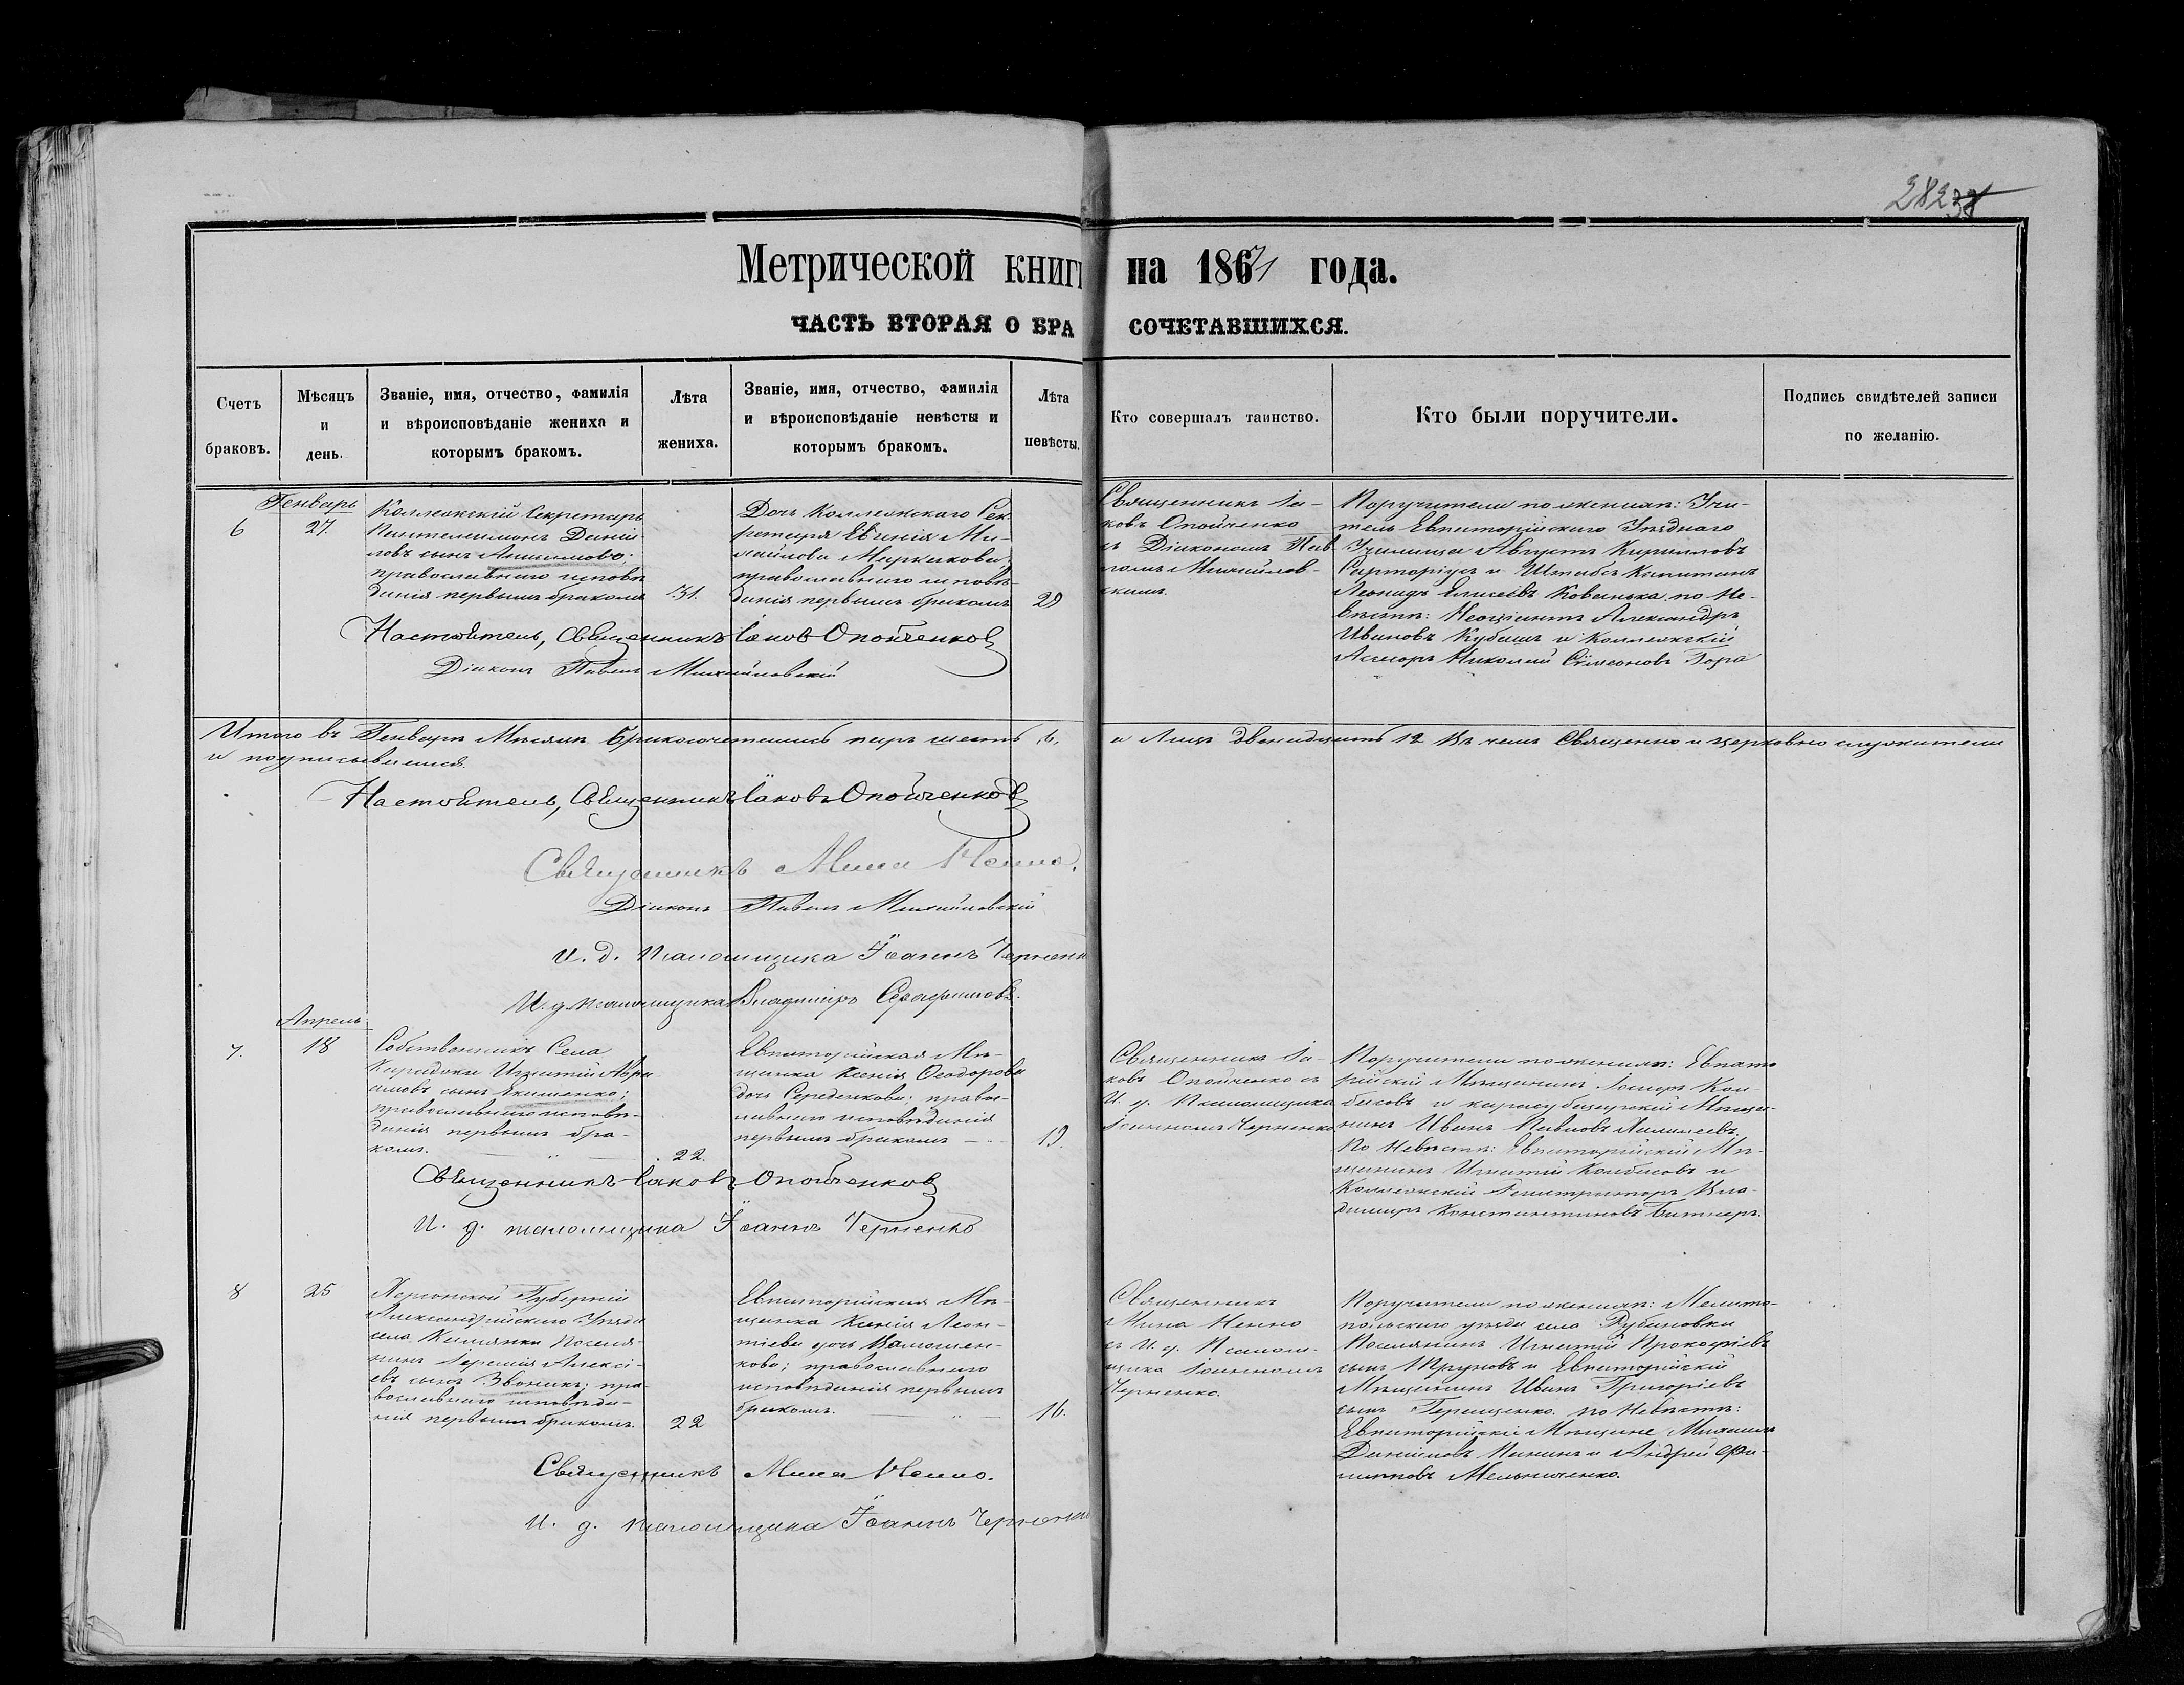 282 38
Метрической книги на 1871 года.
ЧАСТЬ ВТОРАЯ О БРА СОЧЕТАВШИХСЯ.
Счетъ
браковъ.
Мѣсяцъ
и
день.
Званіе, имя, отчество, фамилія
и вѣроисповѣданіе жениха и
которымъ бракомъ.
Лѣта
жениха.
Званіе, имя, отчество, фамилія
и вѣроисповѣданіе невѣсты и
которымъ бракомъ.
Лѣта
невѣсты.
Кто совершалъ таинство.
Кто были поручители.
Подпись свидѣтелей записи
по желанію.
Генварь
6
27.
Коллежскій Секретарь
Пантелеимонъ Даніи-
ловъ сынъ
православнаго исповѣ
данія первымъ бракомъ
31.
Дочь Коллежскаго Сек-
ретаря Евгенія Ми-
хайлова Маркакова;
православнаго исповѣ-
данія первымъ бракомъ
29
Священникъ Іа-
ковъ Опойченко
съ Діакономъ Пав-
ломъ Михайлов-
скимъ.
Поручители по женихѣ: Учи-
тель Евпаторійскаго Уѣзднаго
Училища Августъ Кирилловъ
Сарторіусъ и Штабсъ Капитанъ
Леонидъ Елисеевъ Кованько. по Не-
вѣстѣ: Негоціантъ Александръ
Ивановъ Кубашъ и Коллежскій
Асесоръ Николай Сѵмеоновъ Гора
Настоятель, Священникъ Іаковъ Опойченковъ
Діаконъ Павелъ Михайловскій
Итого въ Генварѣ Мѣсяцѣ бракосочетались паръ шесть 6. а Лицъ двенадцать 12 Въ чемъ Священно и церковно служители
и подписываемся.
Настоятель, Священникъ Іаковъ Опойченковъ
Священникъ Мина Ненно.
Діаконъ Павелъ Михайловскій
И. д. псаломщика Іоаннъ Черненк
И. д. псаломщика Владиміръ Серафимовъ.
Апрель
7.
18
Собственникъ Села
Караджи Игнатій Авра-
амовъ сынъ Якименко;
православнаго исповѣ-
данія первымъ бра-
комъ.
22.
Евпаторійская Мѣ-
щанка Ксенія Ѳеодорова
дочь Середенкова; право-
славнаго исповѣданія
первымъ бракомъ
19.
Священникъ Іа-
ковъ Опойченко съ
И. д. Псаломщика
Іоанномъ Черненко
Поручители по женихѣ: Евпато
рійскій Мѣщанинъ Іосифъ Кол-
басовъ и карасубазарскій Мѣща-
нинъ Иванъ Павловъ
По Невѣстѣ: Евпаторійскій Мѣ-
щанинъ Игнатій Колбасовъ и
Коллежскій Регистраторъ Вла-
димиръ Константиновъ Битнеръ.
Священникъ Іаковъ Опойченковъ
И. д. псаломщика Іоаннъ Черненко
8
25
Херсонской Губерніи
Александрійскаго Уѣзда
села Поселя-
нинъ Іеремія Алексі-
евъ сынъ Звоникъ; пра-
вославнаго исповѣда-
нія первымъ бракомъ.
22
Евпаторійская Мѣ-
щанка Ксенія Леон-
тіева дочь
кова; православнаго
исповѣданія первымъ
бракомъ.
16.
Священникъ
Мина Ненно
съ И. д. Псалом-
щика Іоанномъ
Черненко.
Поручители по женихѣ: Мелито-
польскаго уѣзда села Рубановки
Поселянинъ Игнатій Прокофіевъ
сынъ Трусовъ и Евпаторійскій
Мѣщанинъ Иванъ Григоріевъ
сынъ Геращенко. по Невѣстѣ:
Евпаторійскіе Мѣщане Михаилъ
Даніиловъ и Андрей Фи-
липповъ Мельниченко.
Священникъ Мина Ненно.
И. д. псаломщика Іоаннъ Черненк